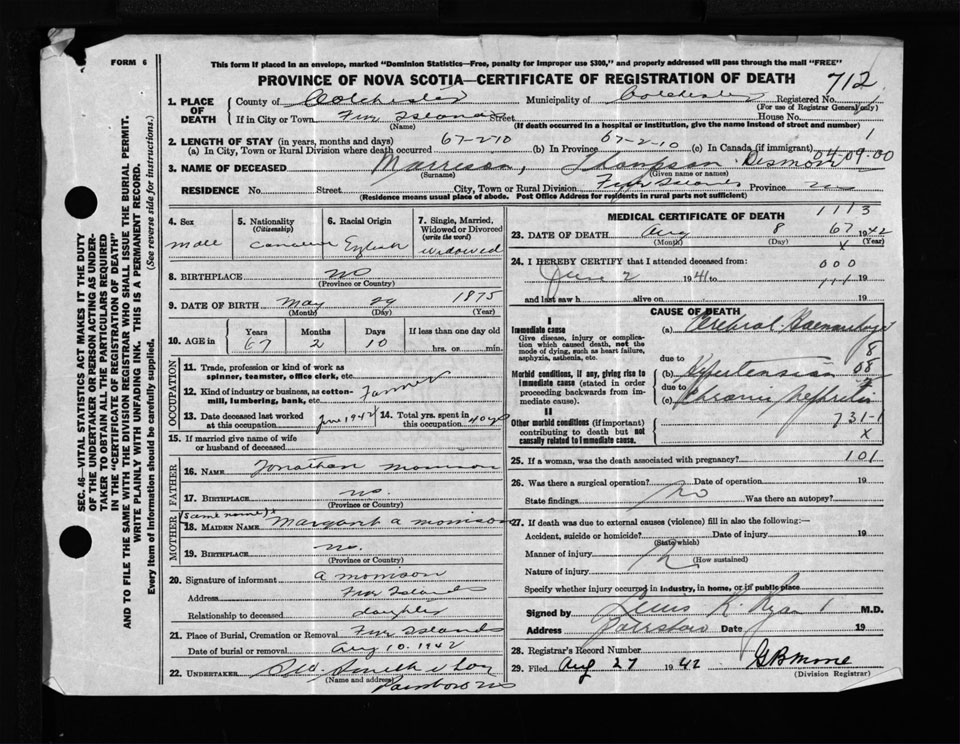 FORM 6
This form if placed in an envelope, marked "Dominion Statistics—Free, penalty for improper use $300," and properly addressed will pass through the mail "FREE"
PROVINCE OF NOVA SCOTIA—CERTIFICATE OF REGISTRATION OF DEATH
712
1. PLACE OF DEATH
County of Colchester Municipality of Colchester Registered No.
(For use of Registrar General only)
If in City or Town Five Islands Street House No.
(Name) (If death occurred in a hospital or institution, give the name instead of street and number)
2. LENGTH OF STAY (in years, months and days)
(a) In City, Town or Rural Division where death occurred 67-2-10 (b) In Province 67-2-10 (c) In Canada (if immigrant) 1
04-09-00
3. NAME OF DECEASED Morrison, Thompson
(Surname) (Given name or names)
RESIDENCE No. Street City, Town or Rural Division Five Islands Province
(Residence means usual place of abode. Post Office Address for residents in rural parts not sufficient)
4. Sex
male
5. Nationality
(Citizenship)
6. Racial Origin
English
7. Single, Married, Widowed or Divorced
(write the word)
widowed
8. BIRTHPLACE
(Province or Country)
9. DATE OF BIRTH May 29 1875
(Month) (Day) (Year)
10. AGE in
Years 67
Months 2
Days 10
If less than one day old
hrs. or min.
OCCUPATION
11. Trade, profession or kind of work as spinner, teamster, office clerk, etc.
12. Kind of industry or business, as cotton-mill, lumbering, bank, etc. Farmer
13. Date deceased last worked at this occupation June 1942
14. Total yrs. spent in this occupation
15. If married give name of wife or husband of deceased
FATHER
16. NAME Jonathan Morrison
17. BIRTHPLACE
(Province or Country)
MOTHER
(Same name)
18. MAIDEN NAME Margaret a morrison
19. BIRTHPLACE
(Province or Country)
20. Signature of informant a morrison
Address Five Islands
Relationship to deceased daughter
21. Place of Burial, Cremation or Removal Five Islands
Date of burial or removal Aug 10, 1942
22. UNDERTAKER Smith
(Name and address)
MEDICAL CERTIFICATE OF DEATH
1113
23. DATE OF DEATH Aug 8 67 1942
(Month) (Day) X (Year)
24. I HEREBY CERTIFY that I attended deceased from: 000
June 2 1941 to 19
and last saw h alive on 19
CAUSE OF DEATH
I
Immediate cause
Give disease, injury or complication which caused death, not the mode of dying, such as heart failure, asphyxia, asthenia, etc.
(a) Cerebral Haemorrhage
8
due to
Morbid conditions, if any, giving rise to immediate cause (stated in order proceeding backwards from immediate cause).
(b) Hypertension
08
due to
(c) Chronic Nephritis
II
Other morbid conditions (if important) contributing to death but not causally related to immediate cause.
731-1
X
25. If a woman, was the death associated with pregnancy? 101
26. Was there a surgical operation? Date of operation 19
State findings no Was there an autopsy?
27. If death was due to external causes (violence) fill in also the following:—
Accident, suicide or homicide? Date of injury 19
(State which)
Manner of injury
(How sustained)
Nature of injury
Specify whether injury occurred in industry, in home, or in public place
Signed by Lewis K. Ryan M.D.
Address Parrsboro Date 19
28. Registrar's Record Number
29. Filed Aug 27 1942
(Division Registrar)
SEC. 46—VITAL STATISTICS ACT MAKES IT THE DUTY
OF THE UNDERTAKER OR PERSON ACTING AS UNDER-
TAKER TO OBTAIN ALL THE PARTICULARS REQUIRED
IN THE "CERTIFICATE OF REGISTRATION OF DEATH"
AND TO FILE THE SAME WITH THE DIVISION REGISTRAR WHO SHALL ISSUE THE BURIAL PERMIT.
WRITE PLAINLY WITH UNFADING INK. THIS IS A PERMANENT RECORD.
Every item of information should be carefully supplied. (See reverse side for instructions.)